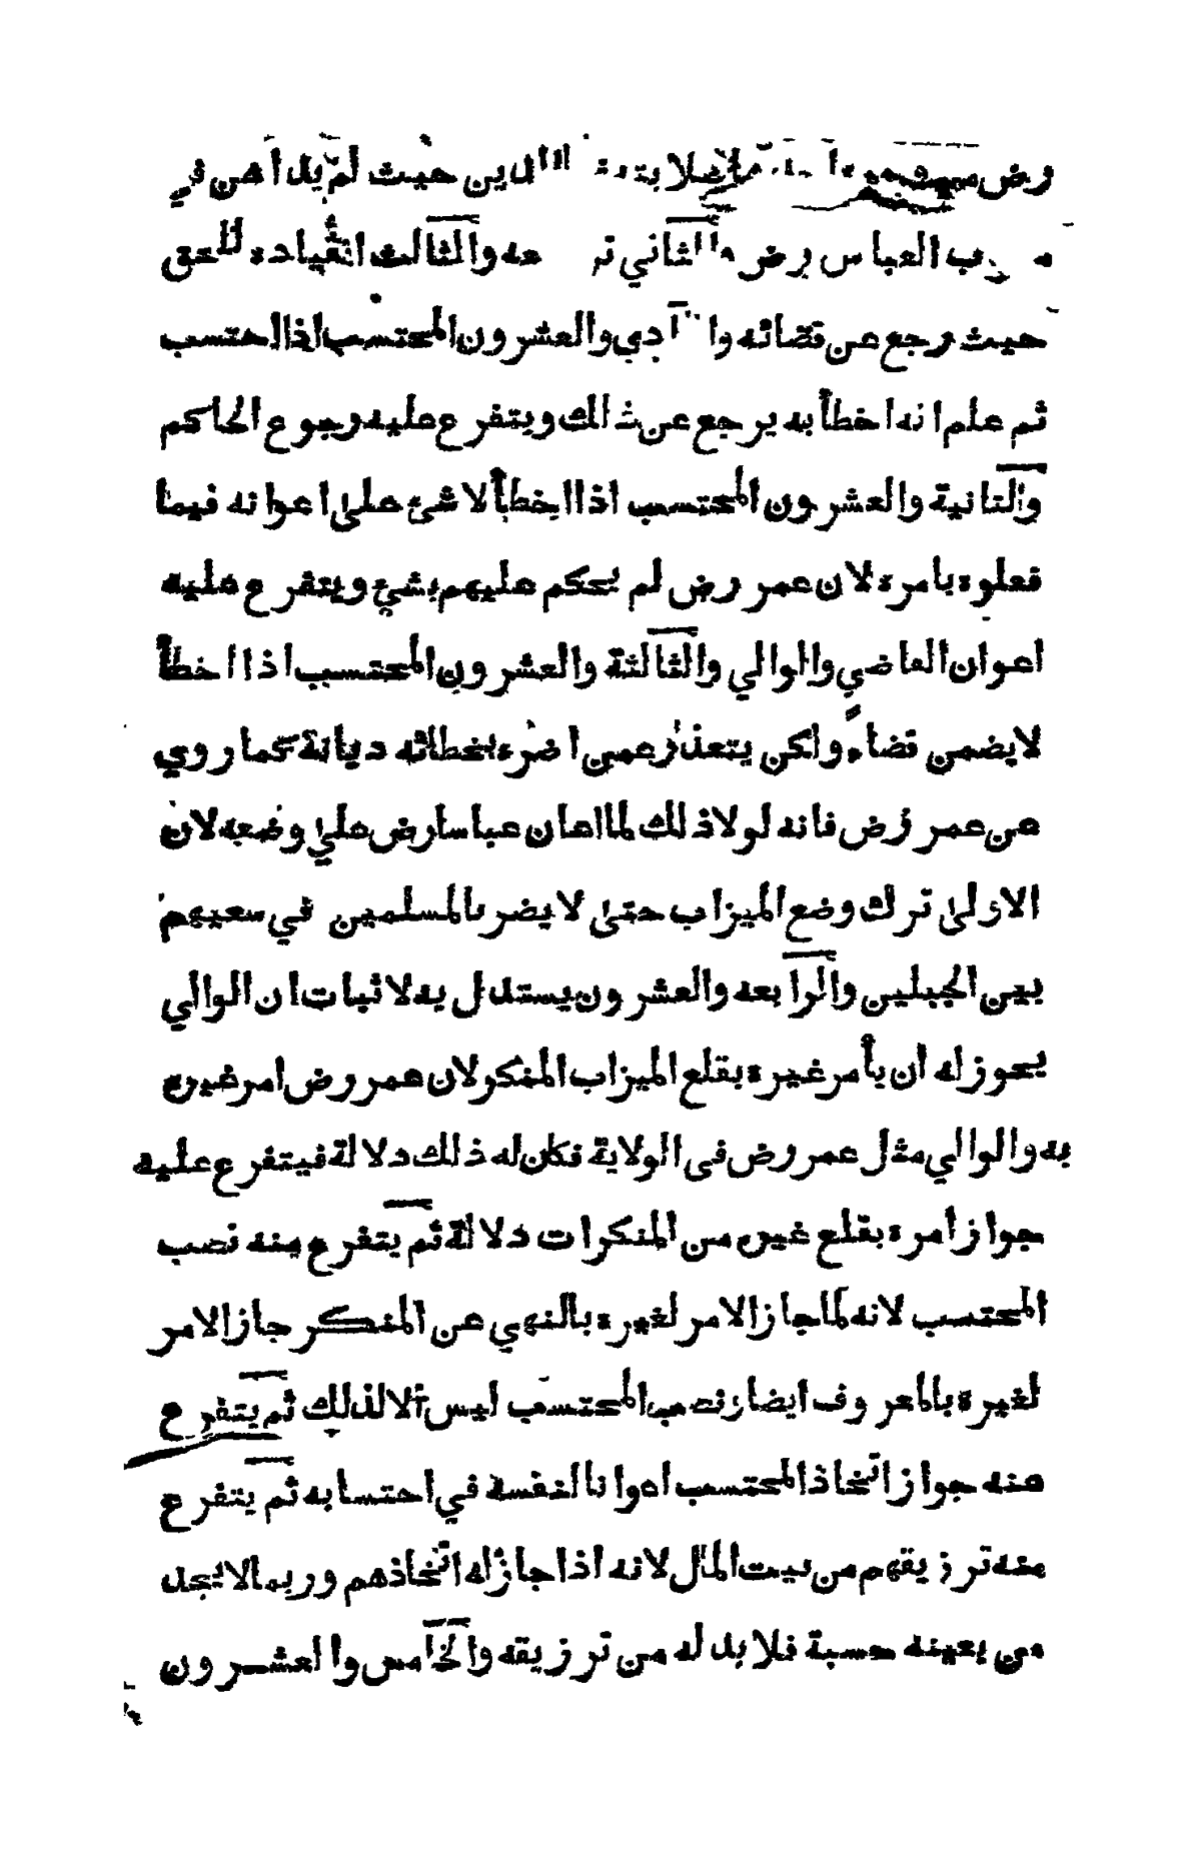 رض صلابته الدين حيث لم يداهن في
العباس رض والثاني والثالث انقياده للحق
حيث رجع عن قضائه والعشرون المحتسب اذا احتسب
ثم علم انه اخطأ به يرجع عن ذلك ويتفرع عليه رجوع الحاكم
والثانية والعشرون المحتسب اذا ايخطأ لا شئ على اعوانه فيما
فعلوه بامره لان عمر رض لم يحكم عليهم بشئ ويتفرع عليه
اعوان القاضي والوالي والثالثة والعشرون المحتسب اذا اخطأ
لايضمن قضاء ولكن يتعذر عمن اضره بخطائه ديانة كما روي
عن عمر رض فانه لولا ذلك لما اهان عباسا رض على وضعه لان
الاولى ترك وضع الميزاب حتى لا يضر بالمسلمين في سعيهم
بين الجبلين والرابعه والعشرون يستدل به لاثبات ان الوالي
يجوز له ان يأمر غيره بقلع الميزاب المنكر لان عمر رض امر غيره
به والوالي مثل عمر رض فى الولاية فكان له ذلك دلالة فيتفرع عليه
جواز أمره بقلع غيره من المنكرات دلالة ثم يتفرع منه نصب
المحتسب لانه لما جاز الامر لغيره بالنهي عن المنكر جاز الامر
لغيره بالمعروف ايضا ونصب المحتسب ليس الا لذلك ثم يتفرع
منه جواز اتخاذ المحتسب اعوانا لنفسه في احتسابه ثم يتفرع
منه ترزيقهم من بيت المال لانه اذا جاز له اتخاذهم وربما لا يجد
من يعينه حسبة فلا بد له من ترزيقه والخامس والعشرون